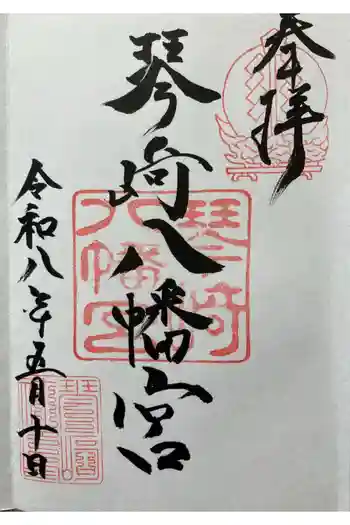 奉拝
琴崎八幡宮
琴崎
八幡宮
令和八年五月十日